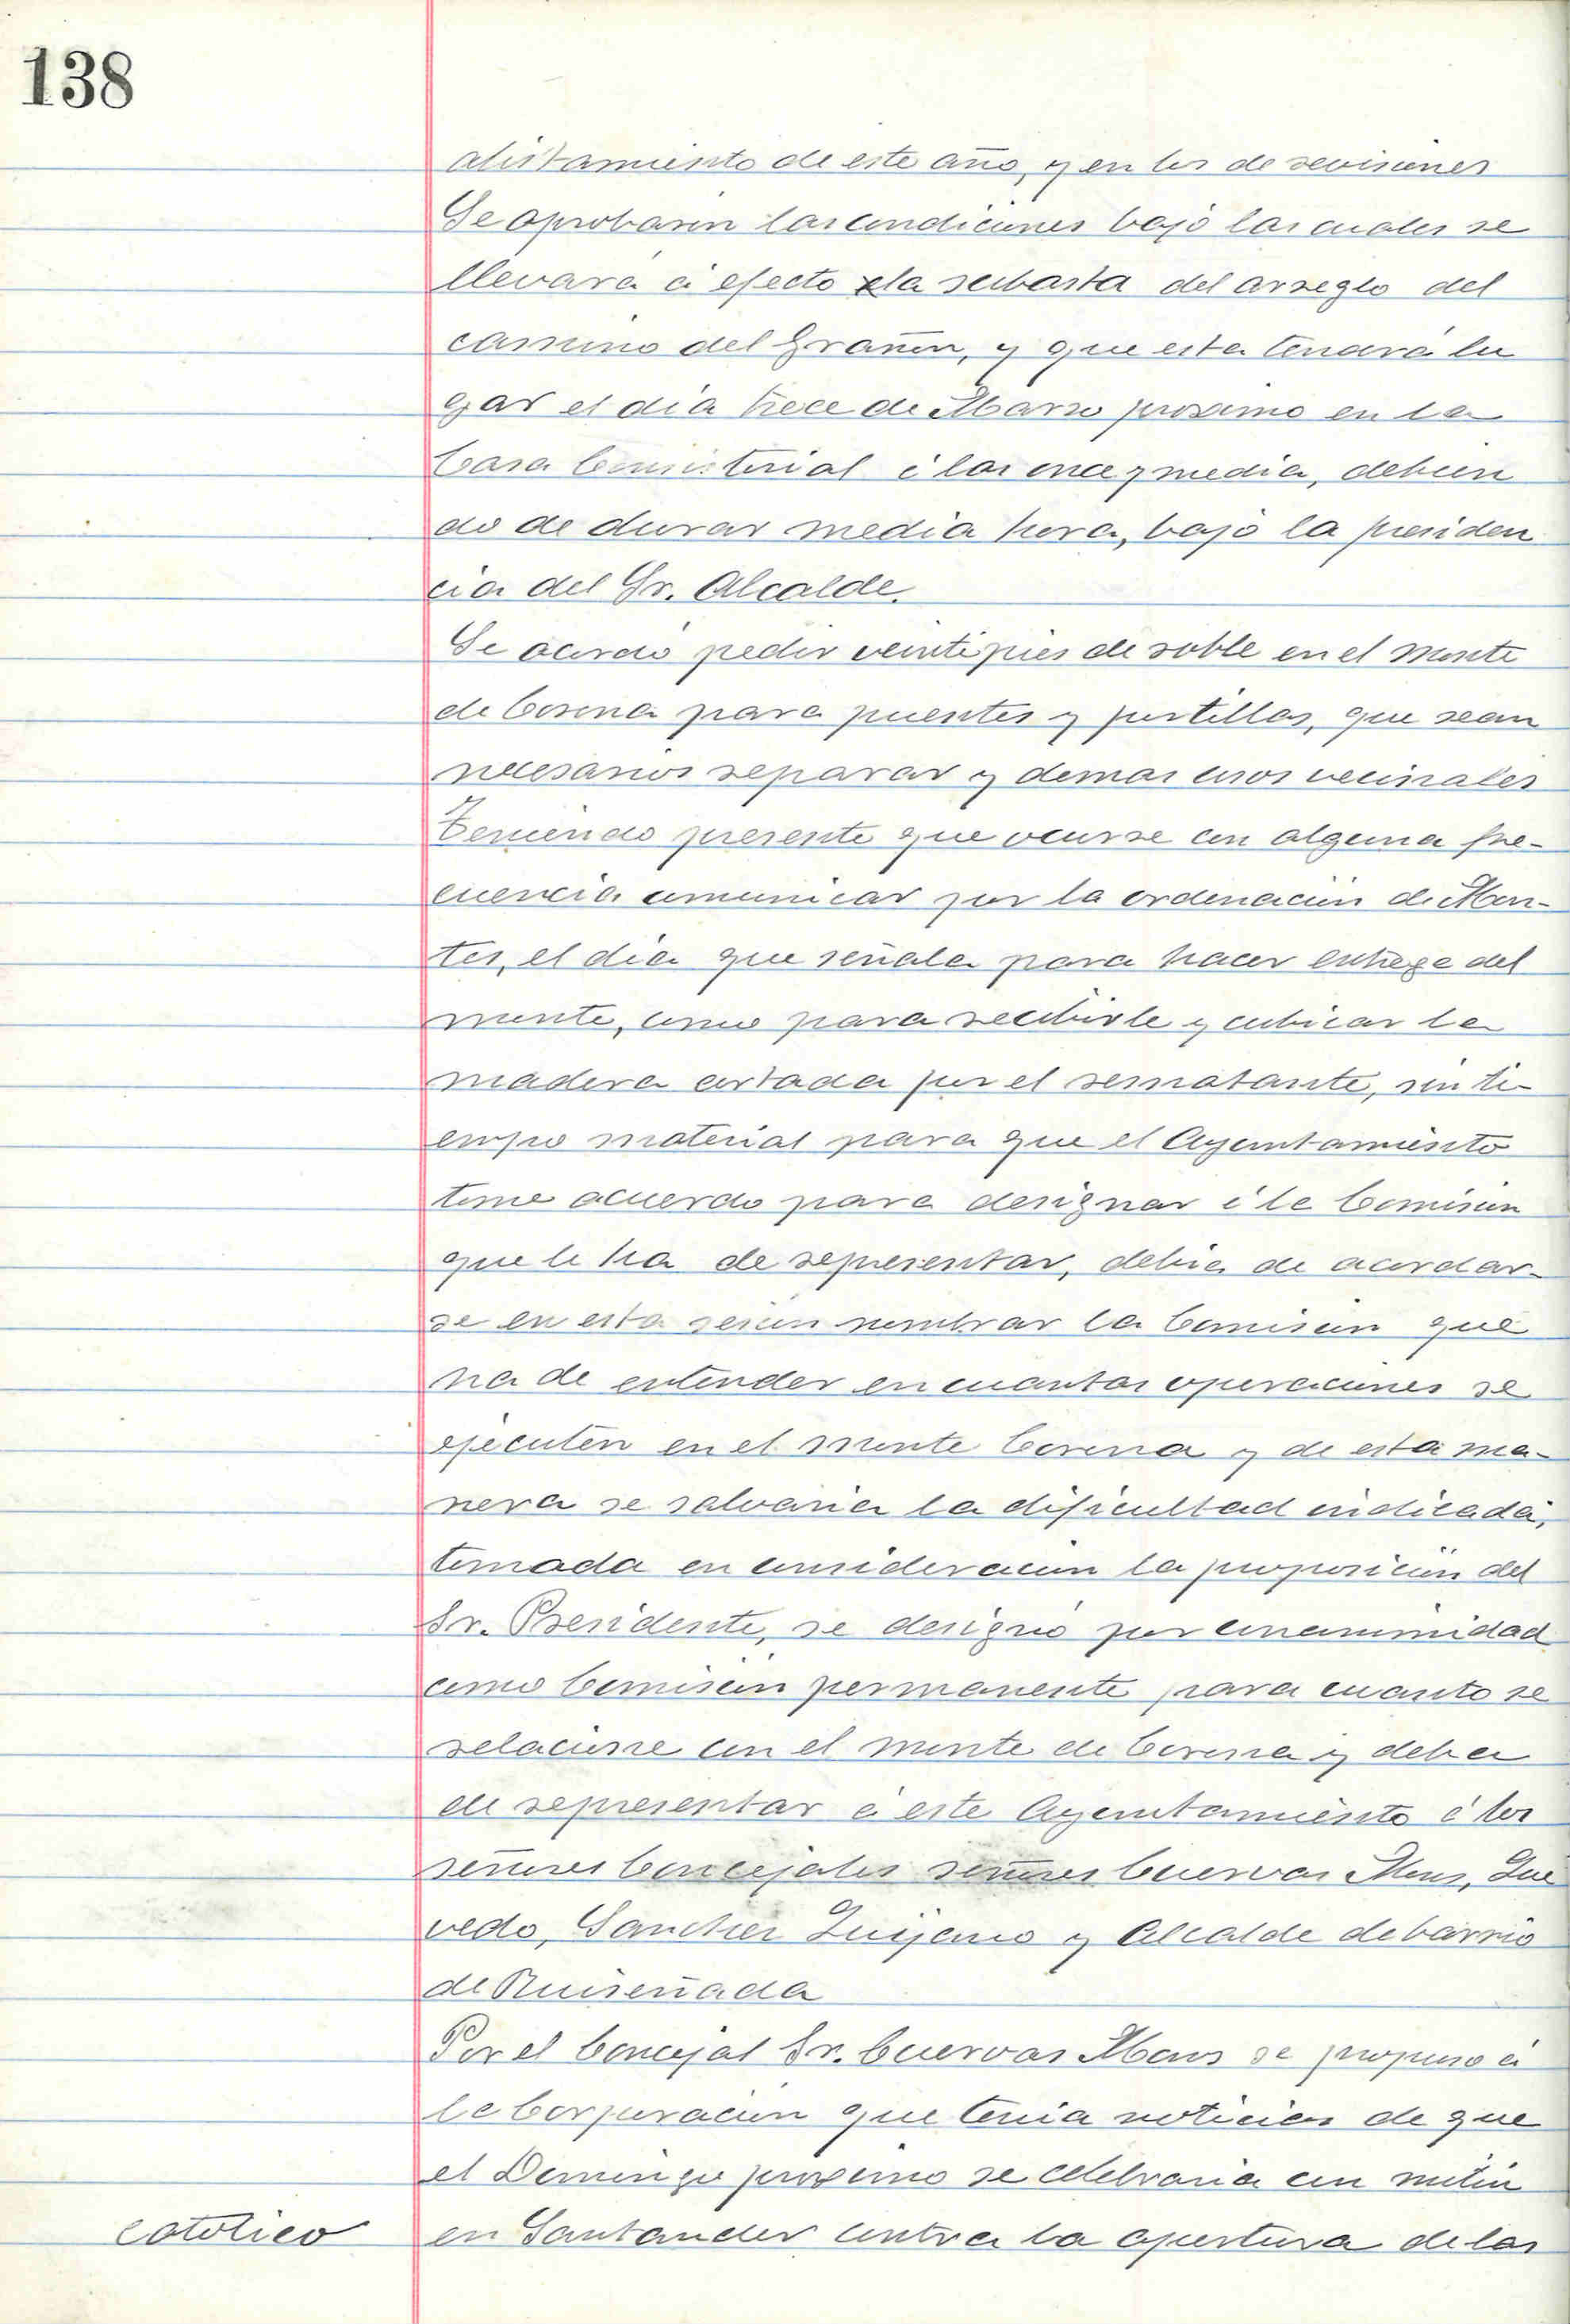 138
alistamiento de este año, y en los de revisiones
Se aprobaron las condiciones bajo las cuales se
llevará á efecto la subasta del arreglo del
camino del Grañon, y que esta tendrá lu
gar el día trece de Marzo proximo en la
Casa Consistorial á las once y media, debien
do de durar media hora, bajo la presiden
cia del Sr. Alcalde.
Se acordó pedir veinte pies de roble en el monte
de Corona para puentes y portillas, que sean
necesarios reparar y demas usos vecinales
Teniendo presente que ocurre con alguna fre-
cuencia comunicar por la ordenación de Mon-
tes, el día que señala para hacer entrega del
monte, como para recibirle y cubicar la
madera cortada por el rematante, sin ti-
empo material para que el Ayuntamiento
tome acuerdo para designar á la Comisión
que le ha de representar, debia de acordar-
se en esta sesión nombrar la Comisión que
ha de entender en cuantas operaciones se
ejecuten en el monte Corona y de esta ma-
nera se salvaria la dificultad indicada,
tomada en consideración la proposición del
Sr. Presidente, se designó por unanimidad
como Comisión permanente para cuanto se
relacione con el monte de Corona y deba
de representar á este Ayuntamiento á los
señores Concejales señores Cuervas Mons, Que
vedo, Sanchez Quijano y Alcalde de barrio
de Ruiseñada
Por el Concejal Sr. Cuervas Mons se propuso á
la Corporación que tenia noticias de que
el Domingo proximo se celebraria un mitin
catolico en Santander contra la apertura de las